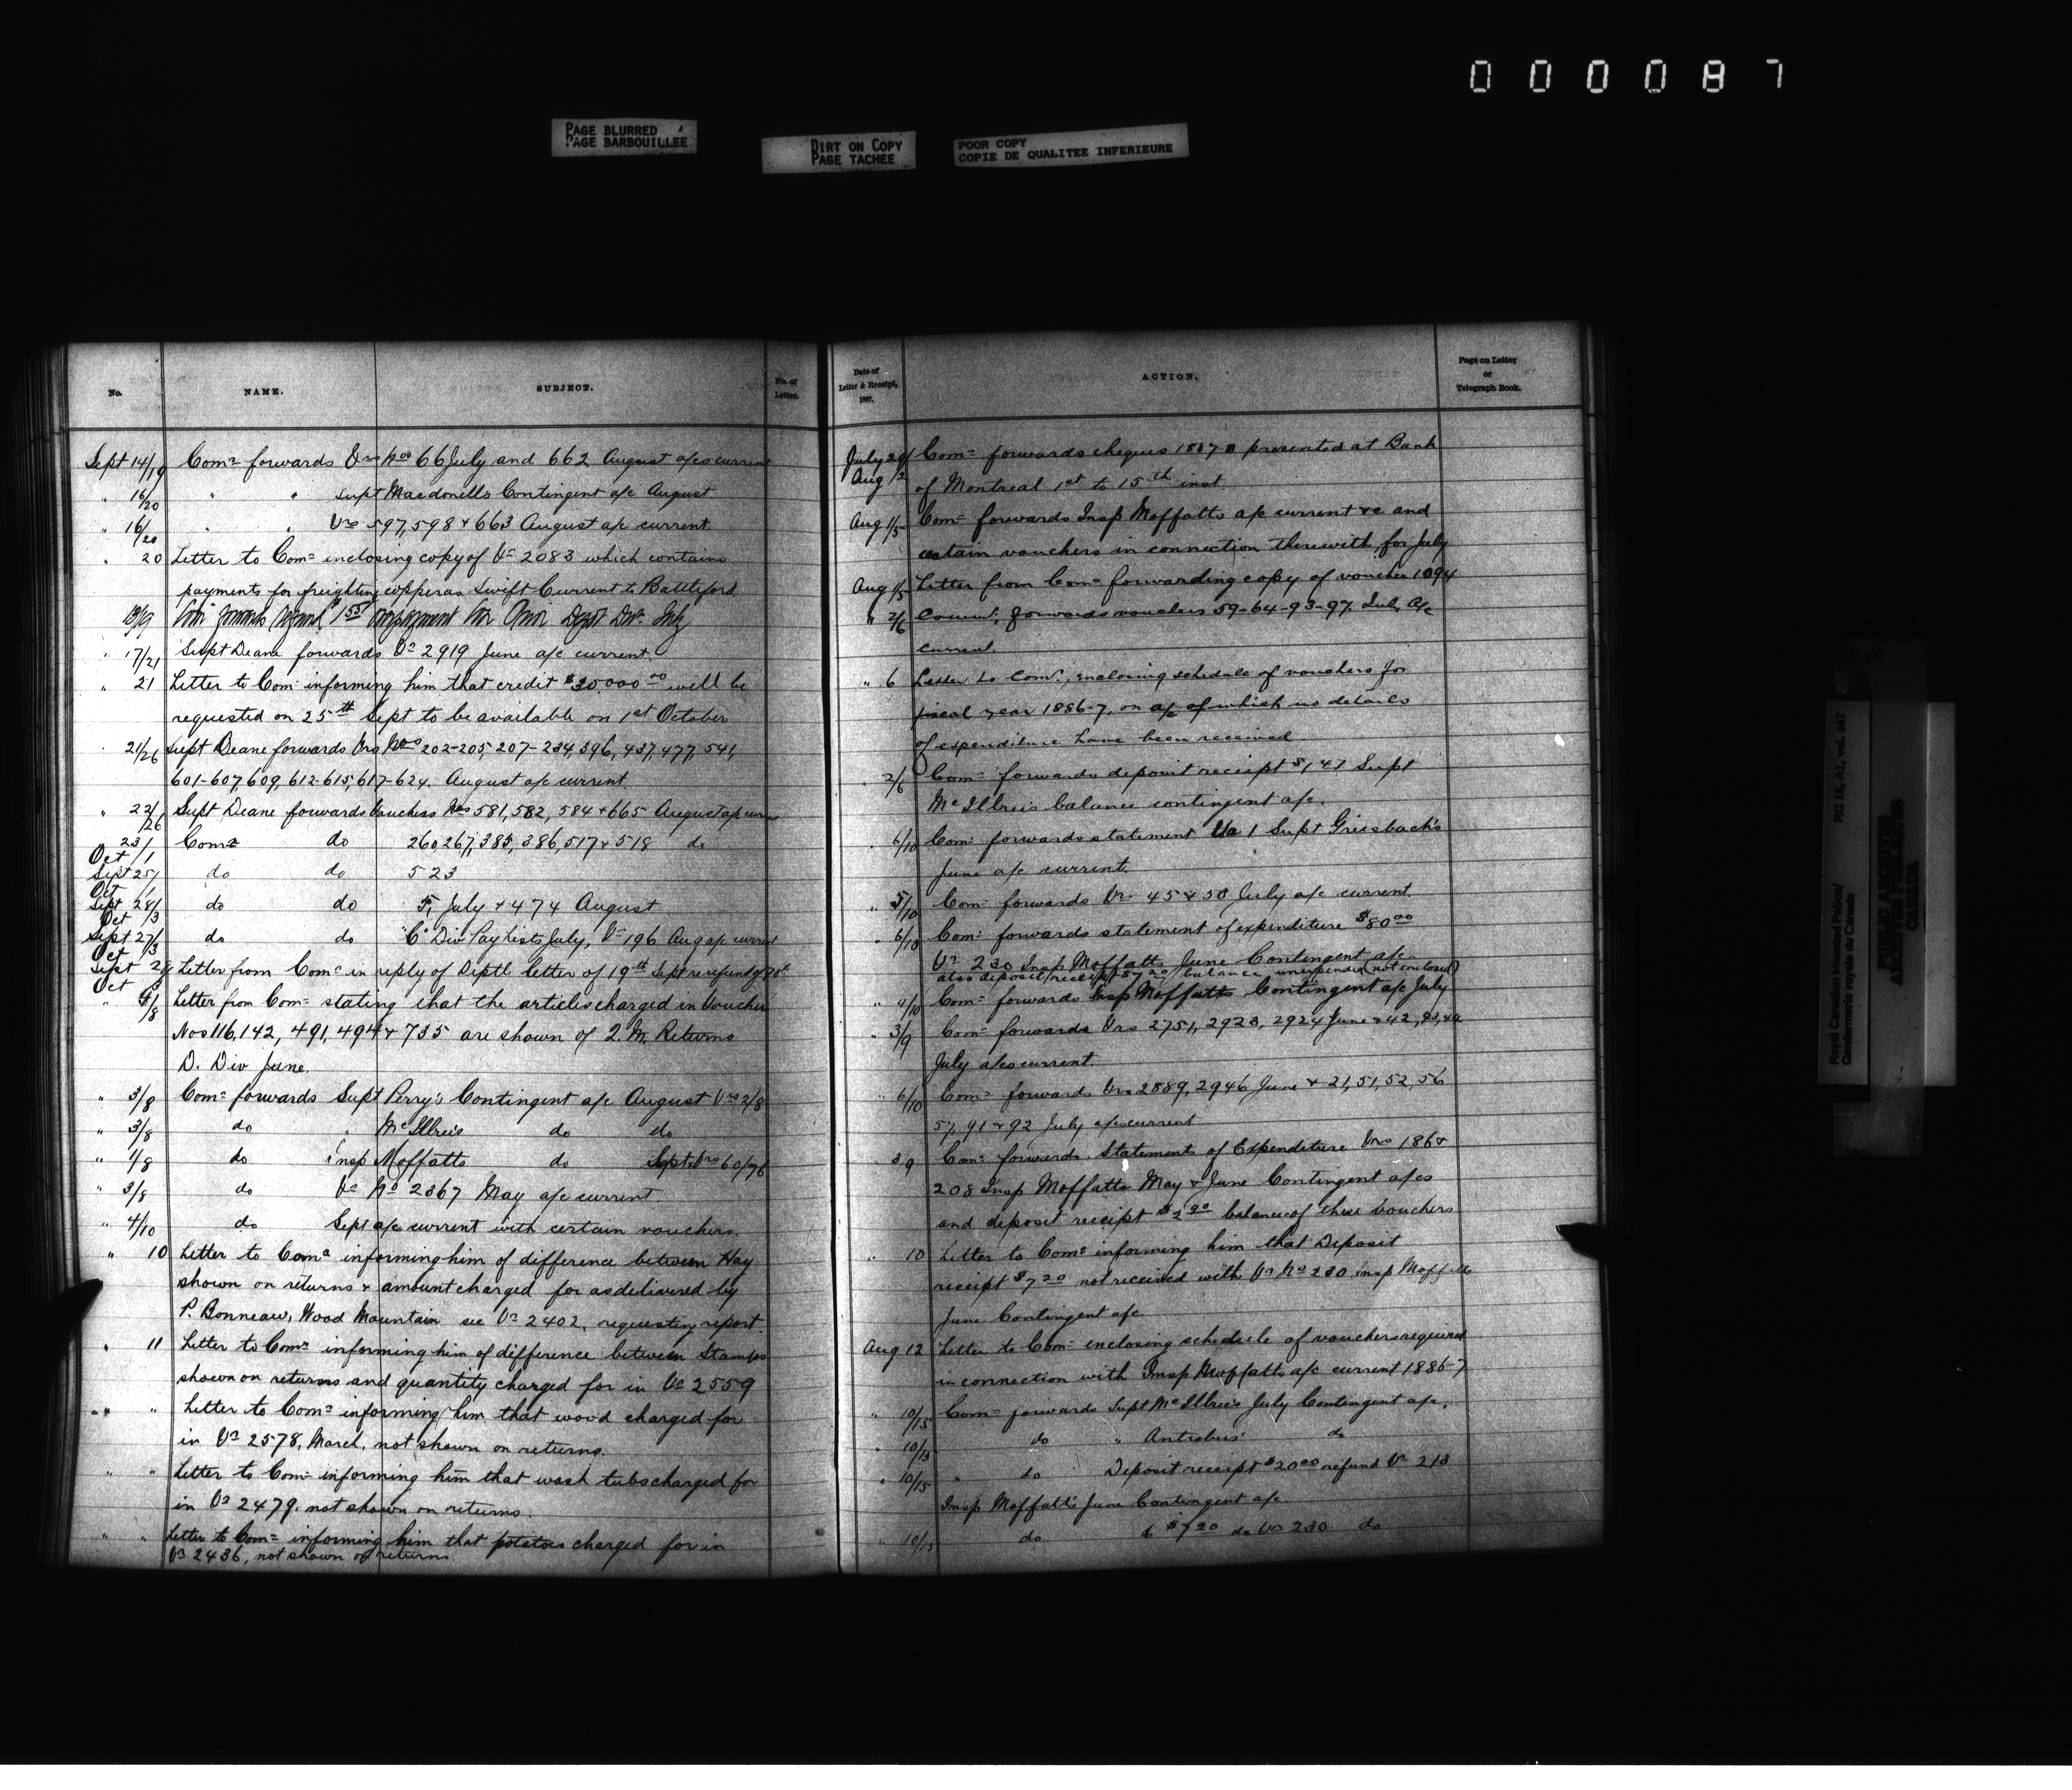 000087
PAGE BLURRED
PAGE BARBOUILLEE
DIRT ON COPY
PAGE TACHEE
POOR COPY
COPIE DE QUALITEE INFERIEURE
No. NAME. SUBJECT. No. of Letter.
Sept 14/19 Comr forwards Vrs Nos 66 July and 662 August a/cs current
" 16/20 " " Supt Macdonells Contingent a/c August
" 16/20 " " Vrs 597, 598 & 663 August a/c current
" 20 Letter to Comr inclosing copy of Vr 2083 which contains
payments for freighting copper as Swift Current to Battleford
18/19
" 17/21 Supt Deane forwards Vr 2919 June a/c current.
" 21 Letter to Comr informing him that credit $30,000 00 will be
requested on 25th Sept to be available on 1st October
21/26 Supt Deane forwards Vrs Nos 202-205, 207-234, 396, 437, 477, 541,
601-607, 609, 612-615, 617-624. August a/c current
" 22/26 Supt Deane forwards Vouchers Nos 581, 582, 584 & 665 August a/c current
23/ Oct 1 Comr do 260 267, 385, 386, 517 & 518 do
Sept 25/ Oct 1 do do 523
Sept 28/ Oct /3 do do 5, July & 474 August
Sept 27/ Oct /3 do do "C" Div Pay Lists July, Vr 196 Aug a/c current
Sept 28 Oct Letter from Comr in reply of Diptl letter of 19th Sept re refund of
" /8 Letter from Comr stating that the articles charged in Voucher
Nos 116, 142, 491, 494 & 735 are shown of Q. M. Returns
D. Div June.
" 3/8 Comr forwards Supt Perry's Contingent a/c August Vrs 2/8
" 3/8 do " McIllree's do do
" 1/8 do Insp Moffatts do Sept Vrs 60/76
" 3/8 do Vr No 2367 May a/c current
" 4/10 do Sept a/c current with certain vouchers.
" 10 Letter to Comr informing him of difference between Hay
shown on returns & amount charged for as delivered by
P. Bonneau, Wood Mountain see Vr 2402, requesting report.
" 11 Letter to Comr informing him of difference between Stamps
shown on returns and quantity charged for in Vr 2559
" " Letter to Comr informing him that wood charged for
in Vr 2578, March, not shown on returns.
" " Letter to Comr informing him that wash tubs charged for
in Vr 2479, not shown on returns.
" " Letter to Comr informing him that potatoes charged for in
Vr 2436, not shown on returns.
Date of Letter & Receipt, 1887. ACTION. Page on Letter or Telegraph Book.
July 29/ Aug /2 Comr forwards cheques 1887-8 presented at Bank
of Montreal 1st to 15th inst.
Aug 1/5 Comr forwards Insp Moffatts a/c current &c and
certain vouchers in connection therewith for July
Aug 1/5 Letter from Comr forwarding copy of voucher 1094
" 2/6 Comr; forwards vouchers 59-64-93-97. July A/c
current.
" 6 Letter to Comr., enclosing schedule of vouchers for
fiscal year 1886-7, on a/c of which no details
of expenditure have been received
" 2/6 Comr forwards deposit receipt $1,47 Supt
McIllree's balance contingent a/c.
" 6/10 Comr forwards statement Vr 1 Supt Griesbach's
June a/c current.
" 5/10 Comr forwards Vrs 45 & 50 July a/c current.
" 6/10 Comr forwards statement of expenditure $80 00
Vr 230 Insp Moffatts June Contingent a/c
also deposit receipt $7 20 balance unexpended (not enclosed)
" 4/10 Comr forwards Insp Moffatts Contingent a/c July
" 3/9 Comr forwards Vrs 2751, 2923, 2924 June & 42, 43, 44
July a/cs current.
" 6/10 Comr forwards Vrs 2889, 2946 June & 21, 51, 52, 56
57, 91 & 92 July a/cs current
3 9 Comr forwards Statements of Expenditure Vrs 186 &
208 Insp Moffatts May & June Contingent a/cs
and deposit receipt $2 90 balance of these vouchers
" 10 Letter to Comr informing him that Deposit
receipt $7 20 not received with Vr No 230 Insp Moffatts
June Contingent a/c.
Aug 12 Letter to Comr enclosing schedule of vouchers required
in connection with Insp Moffatts a/c current 1886-7
" 10/15 Comr forwards Supt McIllree's July Contingent a/c.
" 10/13 do " Antrobus' do
" 10/15 " do Deposit receipt $20 00 refund Vr 213
Insp Moffatt's June Contingent a/c.
" 10/15 do $7 20 do Vr 230 do
Royal Canadian Mounted Police/
Gendarmerie royale du Canada
RG 18, A1, vol. 647
PUBLIC ARCHIVES
ARCHIVES PUBLIQUES
CANADA